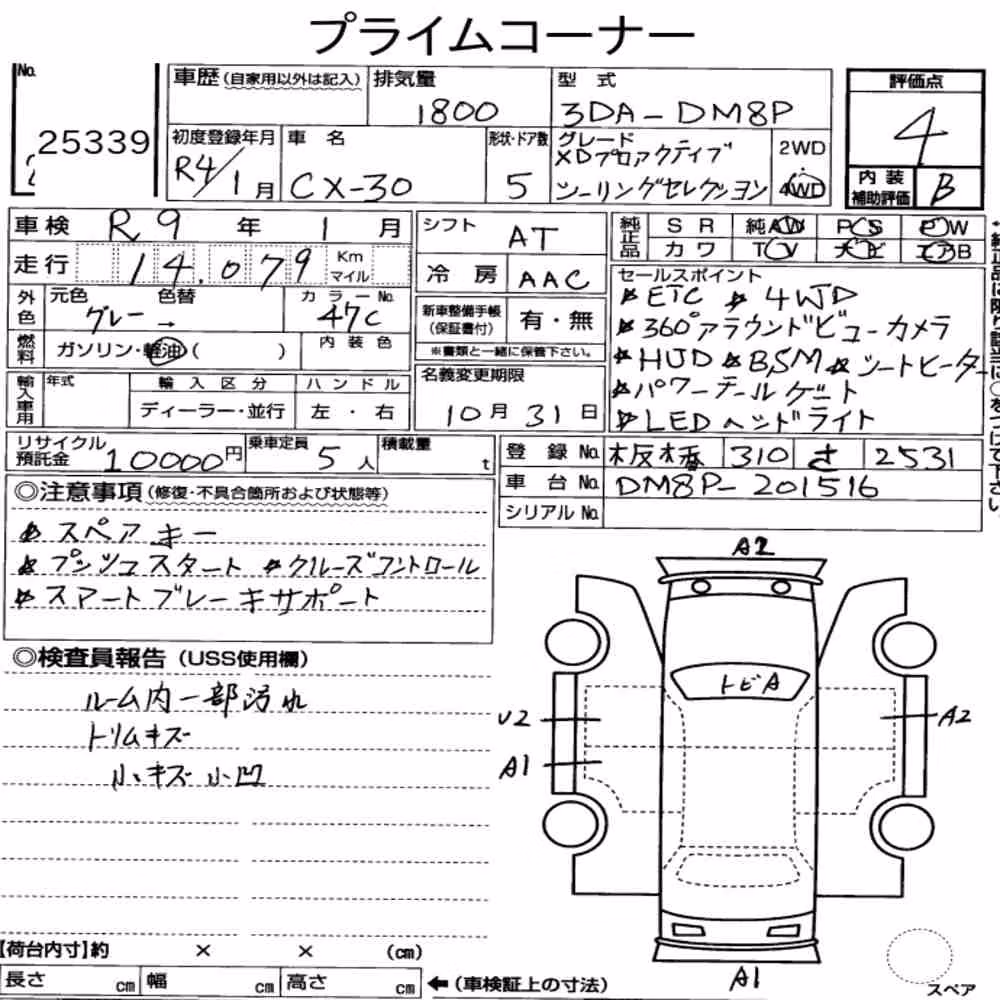 プライムコーナー
No. 25339
車歴 (自家用以外は記入)
排気量 1800
型式 3DA-DM8P
評価点 4
初度登録年月 R4/1月
車名 CX-30
形状・ドア数 5
グレード XDプロアクティブ
ツーリングセレクション
2WD
4WD
内装補助評価 B
車検 R9年 1月
シフト AT
純正品 SR 純AW PS PW
カワ TV ナビ エアB
走行 14,079 Km マイル
冷房 AAC
セールスポイント
ETC 4WD
360°アラウンドビューカメラ
HUD BSM シートヒーター
パワーテールゲート
LEDヘッドライト
外色 元色 色替 カラーNo.
グレー → 47C
新車整備手帳(保証書付) 有・無
※書類と一緒に保管下さい。
燃料 ガソリン・軽油( ) 内装色
名義変更期限
10月31日
輸入車用 年式 輸入区分 ハンドル
ディーラー・並行 左・右
リサイクル預託金 10000円
乗車定員 5人
積載量 t
登録No. 板橋 310 さ 2531
車台No. DM8P-201516
シリアルNo.
◎注意事項 (修復・不具合箇所および状態等)
スペアキー
プッシュスタート クルーズコントロール
スマートブレーキサポート
◎検査員報告 (USS使用欄)
ルーム内一部汚れ
トリムキズ
小キズ小凹
A2
トビA
U2
A2
A1
A1
スペア
【荷台内寸】約 × × (cm)
長さ cm 幅 cm 高さ cm ←(車検証上の寸法)